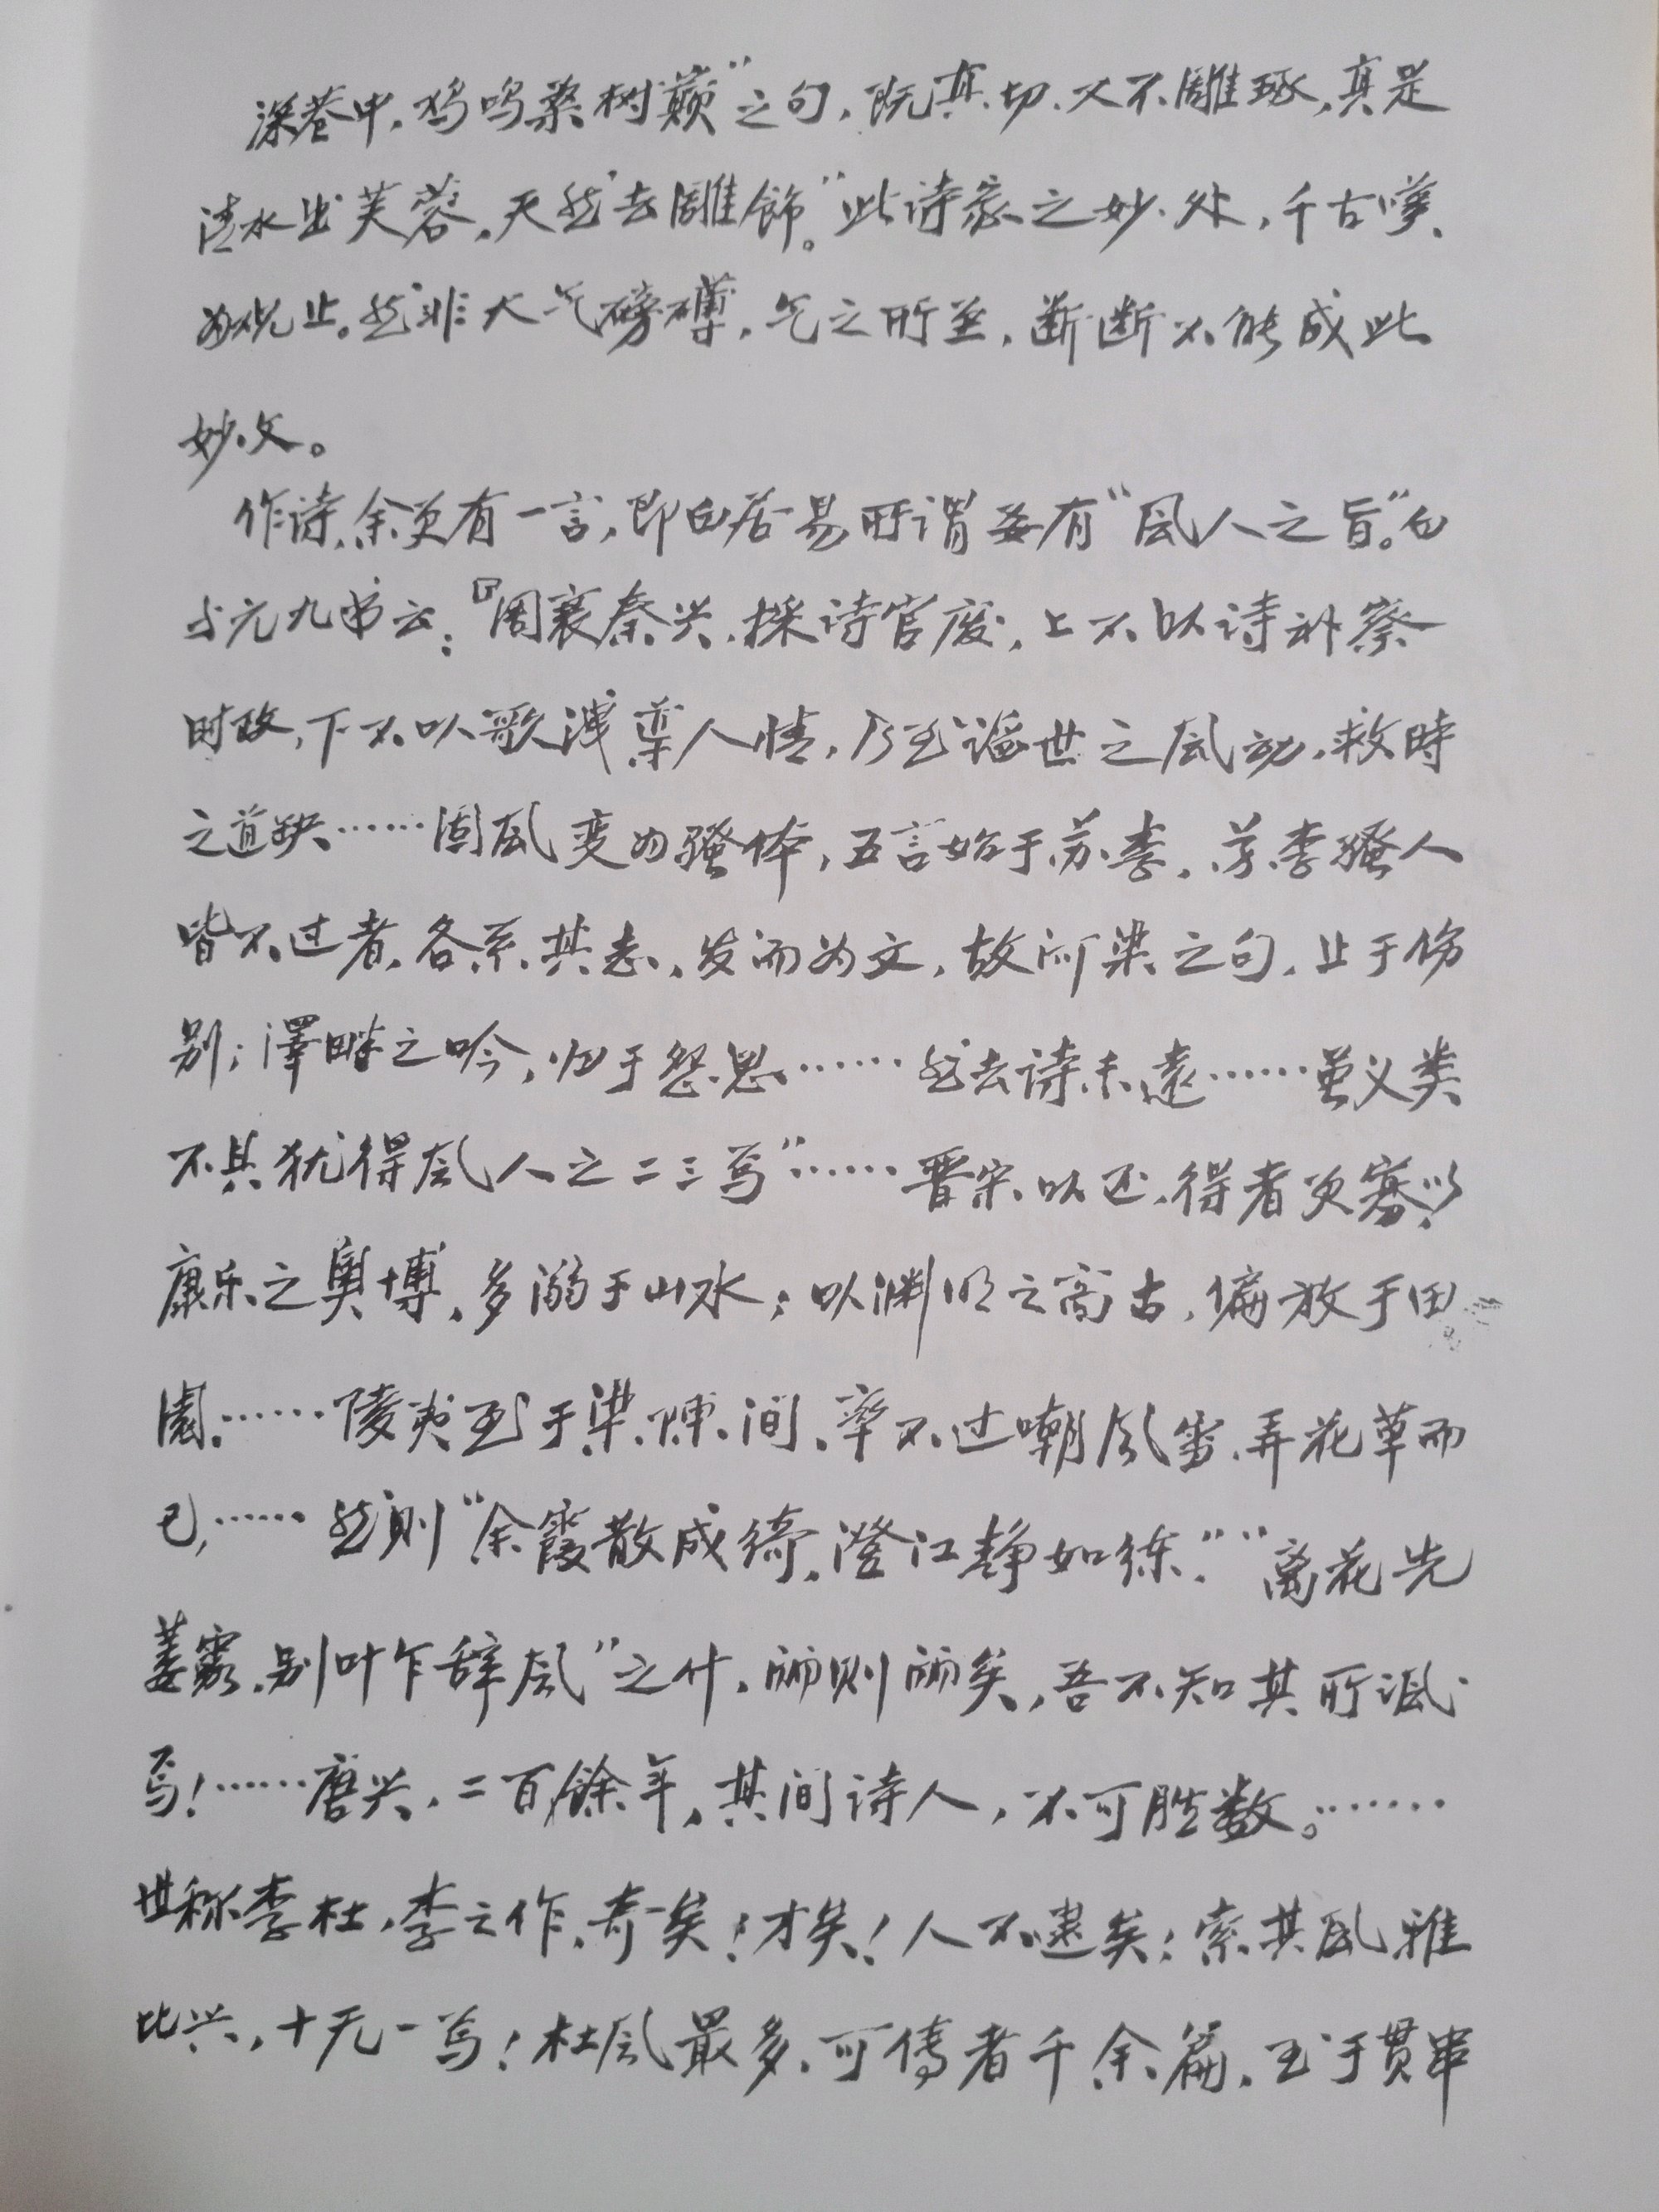 深巷中，鸡鸣桑树巅”之句，既真切，又不雕琢，真是
清水出芙蓉，天然去雕饰。”此诗家之妙处，千古嘆
为观止。然非大气磅礴，气之所至，断断不能成此
妙文。
作诗，余更有一言，即白居易所谓要有“风人之旨”。白
与元九书云：『周衰秦兴，採诗官废，上不以诗补察
时政，下不以歌洩導人情，乃至谄世之风动，救時
之道缺……国风变为骚体，五言始于苏李，苏李骚人
皆不过者，各系其志，发而为文，故河梁之句，止于伤
别；澤畔之吟，归于怨思……然去诗未遠……虽义类
不具犹得风人之二三焉”……晋宋以还，得者益寡！以
康乐之奥博，多溺于山水；以渊明之高古，偏放于田
園……陵夷至于梁陳间，率不过嘲风雪、弄花草而
已，……然则“余霞散成绮，澄江静如练。”“离花先
萎露，别叶乍辞风”之什，丽则丽矣，吾不知其所讽
焉！……唐兴，二百餘年，其间诗人，不可胜数。……
世称李杜，李之作，奇矣！才矣！人不逮矣；索其风雅
比兴，十无一焉！杜风最多，可傳者千余篇，至于贯串